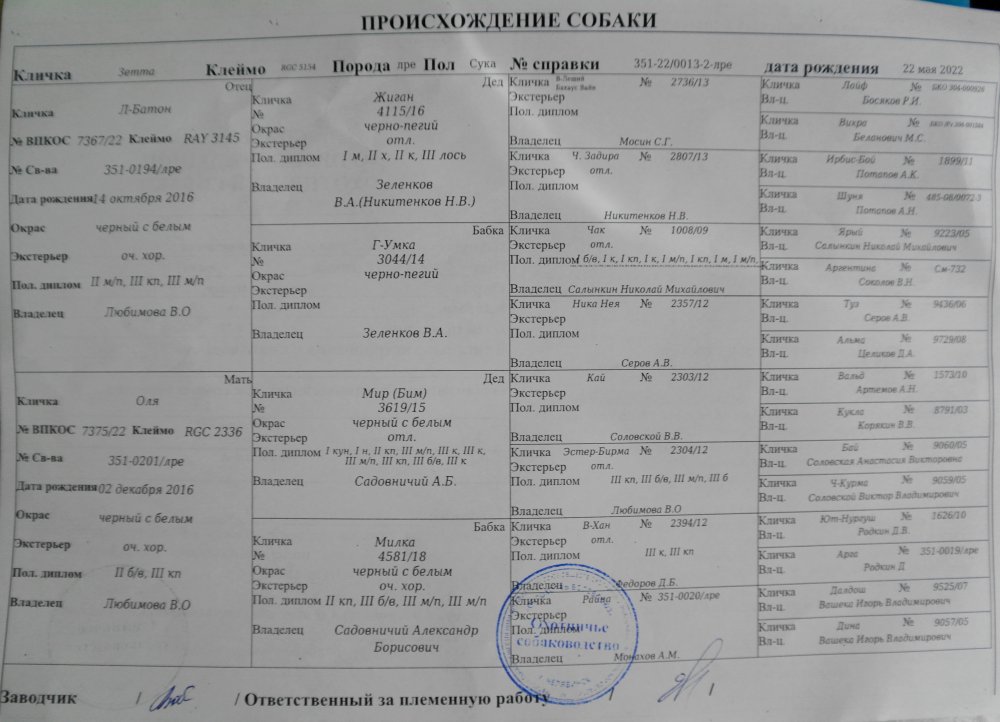 ПРОИСХОЖДЕНИЕ СОБАКИ
Кличка Зетта Клеймо RGC 5154 Порода лре Пол Сука № справки 351-22/0013-2-лре дата рождения 22 мая 2022
Отец
Кличка Л-Батон
№ ВПКОС 7367/22 Клеймо RAY 3145
№ Св-ва 351-0194/лре
Дата рождения 14 октября 2016
Окрас черный с белым
Экстерьер оч. хор.
Пол. диплом II м/п, III кп, III м/п
Владелец Любимова В.О
Мать
Кличка Оля
№ ВПКОС 7375/22 Клеймо RGC 2336
№ Св-ва 351-0201/лре
Дата рождения 02 декабря 2016
Окрас черный с белым
Экстерьер оч. хор.
Пол. диплом II б/в, III кп
Владелец Любимова В.О
Дед
Кличка Жиган
№ 4115/16
Окрас черно-пегий
Экстерьер отл.
Пол. диплом I м, II х, II к, III лось
Владелец Зеленков
В.А.(Никитенков Н.В.)
Бабка
Кличка Г-Умка
№ 3044/14
Окрас черно-пегий
Экстерьер
Пол. диплом
Владелец Зеленков В.А.
Дед
Кличка Мир (Бим)
№ 3619/15
Окрас черный с белым
Экстерьер отл.
Пол. диплом I кун, I н, II кп, III м/п, III к, III к,
III м/п, III кп, III б/в, III к
Владелец Садовничий А.Б.
Бабка
Кличка Милка
№ 4581/18
Окрас черный с белым
Экстерьер оч. хор.
Пол. диплом II кп, III б/в, III м/п, III м/п
Владелец Садовничий Александр
Борисович
Кличка В-Леший № 2736/13
Экстерьер
Пол. диплом
Владелец Мосин С.Г.
Кличка Ч. Задира № 2807/13
Экстерьер отл.
Пол. диплом
Владелец Никитенков Н.В.
Кличка Чак № 1008/09
Экстерьер отл.
Пол. диплом I б/в, I к, I кп, I к, I м/п, I кп, I м, I м/п,
Владелец Салынкин Николай Михайлович
Кличка Ника Нея № 2357/12
Экстерьер
Пол. диплом
Владелец Серов А.В.
Кличка Кай № 2303/12
Экстерьер
Пол. диплом
Владелец Соловской В.В.
Кличка Эстер-Бирма № 2304/12
Экстерьер отл.
Пол. диплом III кп, III б/в, III м/п, III б
Владелец Любимова В.О
Кличка В-Хан № 2394/12
Экстерьер отл.
Пол. диплом III к, III кп
Владелец Федоров Д.Б.
Кличка Райна № 351-0020/лре
Экстерьер
Пол. диплом
Владелец Монахов А.М.
Кличка Лайф №
Вл-ц. Босяков Р.И.
Кличка Викра №
Вл-ц. Беланович М.С.
Кличка Ирбис-Бой № 1899/11
Вл-ц. Потапов А.К.
Кличка Шуня № 485-08/0072-3
Вл-ц. Потапов А.Н.
Кличка Ярый № 9223/05
Вл-ц. Салынкин Николай Михайлович
Кличка Аргентина № См-732
Вл-ц. Соколов В.Н.
Кличка Туз № 9436/06
Вл-ц. Серов А.В.
Кличка Альма № 9729/08
Вл-ц. Целиков Д.А.
Кличка Вальд № 1573/10
Вл-ц. Артемов А.Н.
Кличка Кукла № 8791/03
Вл-ц. Корякин В.В.
Кличка Бай № 9060/05
Вл-ц. Соловская Анастасия Викторовна
Кличка Ч-Курма № 9059/05
Вл-ц. Соловской Виктор Владимирович
Кличка Ют-Нургуш № 1626/10
Вл-ц. Родкин Д.В.
Кличка Арга № 351-0019/лре
Вл-ц. Родкин Д
Кличка Далдош № 9525/07
Вл-ц. Вашека Игорь Владимирович
Кличка Дина № 9057/05
Вл-ц. Вашека Игорь Владимирович
Охотничье
собаководство
г. ЧЕЛЯБИНСК
Заводчик / / Ответственный за племенную работу / /